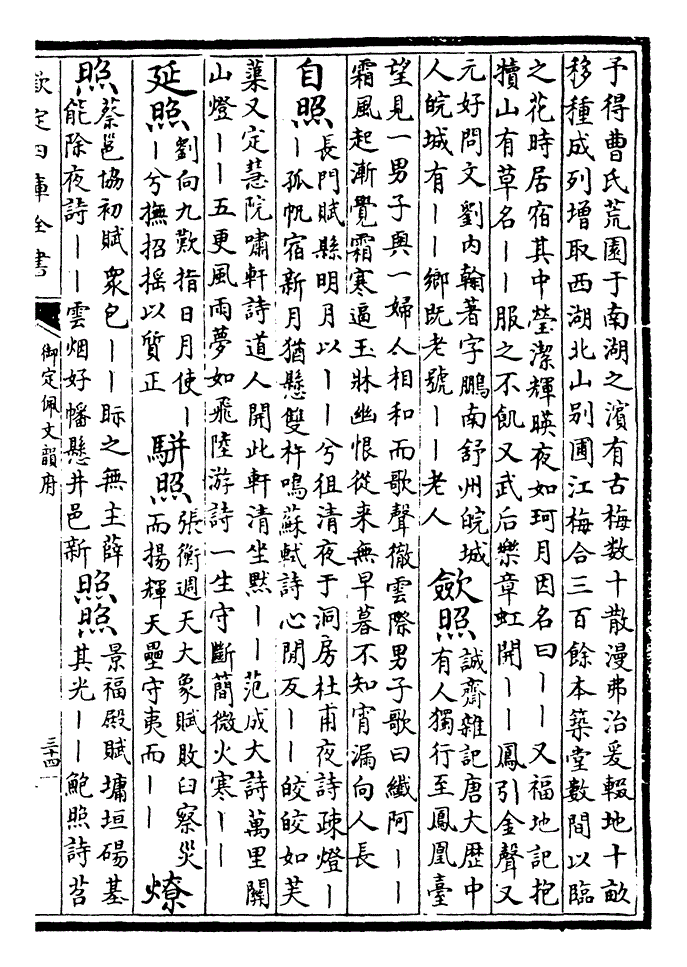 予得曹氏荒園于南湖之濱有古梅数十散漫弗治爰輟地十畝
移種成列增取西湖北山别圃江梅合三百餘本築堂數間以臨
之花時居宿其中瑩潔輝暎夜如珂月因名曰丨丨又福地記抱
犢山有草名丨丨服之不飢又武后樂章虹開丨丨鳳引金聲又
元好問文劉内翰著字鵬南舒州皖城
人皖城有丨丨鄉既老號丨丨老人
歛照
誠齋雜記唐大歴中
有人獨行至鳳凰臺
望見一男子與一婦人相和而歌聲徹雲際男子歌曰纖阿丨丨
霜風起漸覺霜寒逼玉牀幽恨從来無早暮不知宵漏向人長
自照
長門賦縣明月以丨丨兮徂清夜于洞房杜甫夜詩疎燈丨
丨孤帆宿新月猶懸雙杵鳴蘇軾詩心閒反丨丨皎皎如芙
蕖又定慧院嘯軒詩道人開此軒清坐默丨丨范成大詩萬里關
山燈丨丨五更風雨夢如飛陸游詩一生守斷簡微火寒丨丨
延照
劉向九歎指日月使丨
丨兮撫招揺以質正
駢照
張衡週天大象賦敗臼察災
而揚輝天壘守夷而丨丨
燎
照
蔡邕協初賦衆色丨丨眎之無主薛
能除夜詩丨丨雲烟好幡懸井邑新
照照
景福殿賦墉垣碭基
其光丨丨鮑照詩苕
欽定四庫全書
御定佩文韻府
三十四